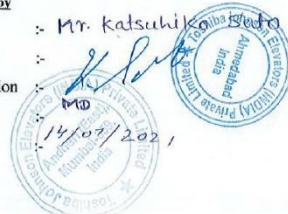 by
:- Mr. Katsuhiko Sato
:-
ion :- MD
:- 14/07/2021
Toshiba Johnson Elevators (INDIA) Private Limited
Ahmedabad
India
Toshiba Johnson Elevators Private Limited
Andheri (East)
Mumbai
India